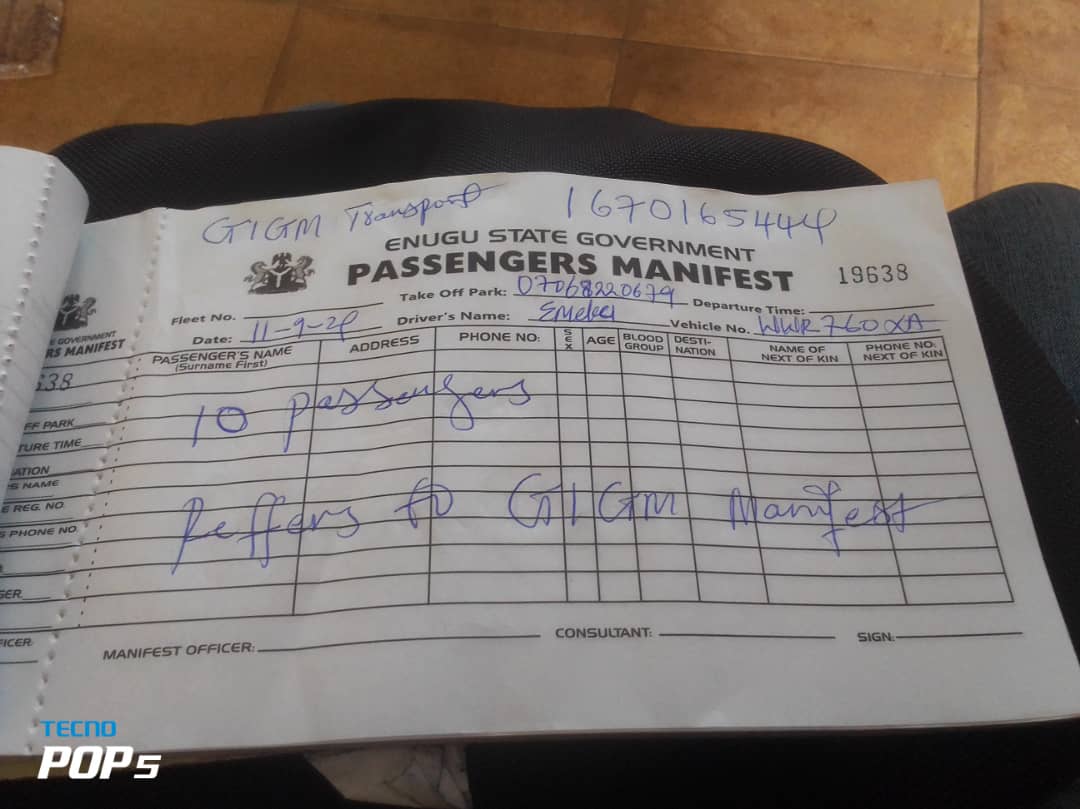 GIGM Transport 1670165444
ENUGU STATE GOVERNMENT
PASSENGERS MANIFEST 19638
Fleet No. Take Off Park: 07068220679 Departure Time:
Date: 11-9-24 Driver's Name: Emeka Vehicle No. WWR 760XA
PASSENGER'S NAME (Surname First) ADDRESS PHONE NO: SEX AGE BLOOD GROUP DESTI-NATION NAME OF NEXT OF KIN PHONE NO: NEXT OF KIN
10 passengers
Reffers to GIGM Manifest
MANIFEST OFFICER: CONSULTANT: SIGN:
GOVERNMENT
RS MANIFEST
638
FF PARK
TURE TIME
ATION
S NAME
E REG. NO.
S PHONE NO.
GER
FICER
TECNO
POP 5